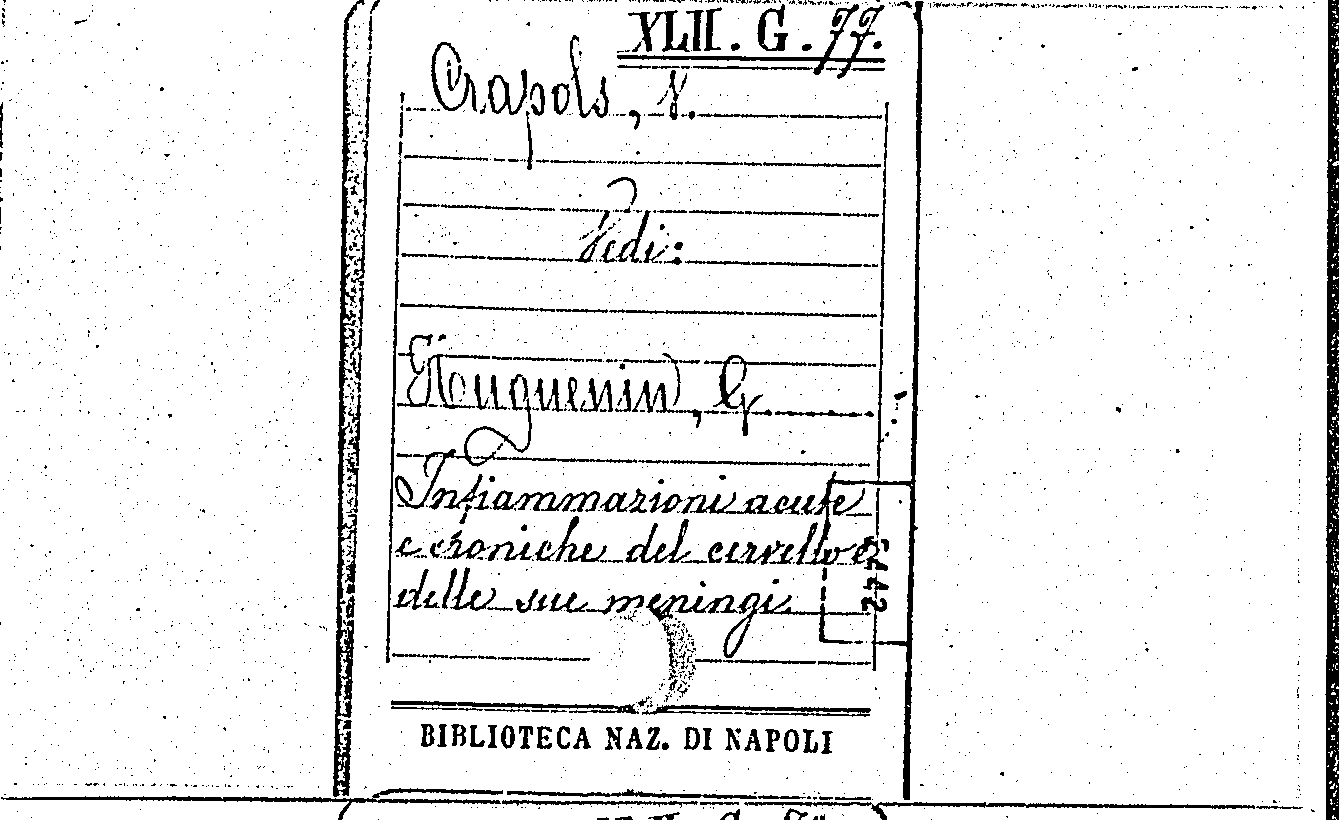 XLII. G. 77.
Crapols, V.
Vedi:
Huguenin, G.
Infiammazioni acute
e croniche del cervello e
delle sue meningi.
BIBLIOTECA NAZ. DI NAPOLI